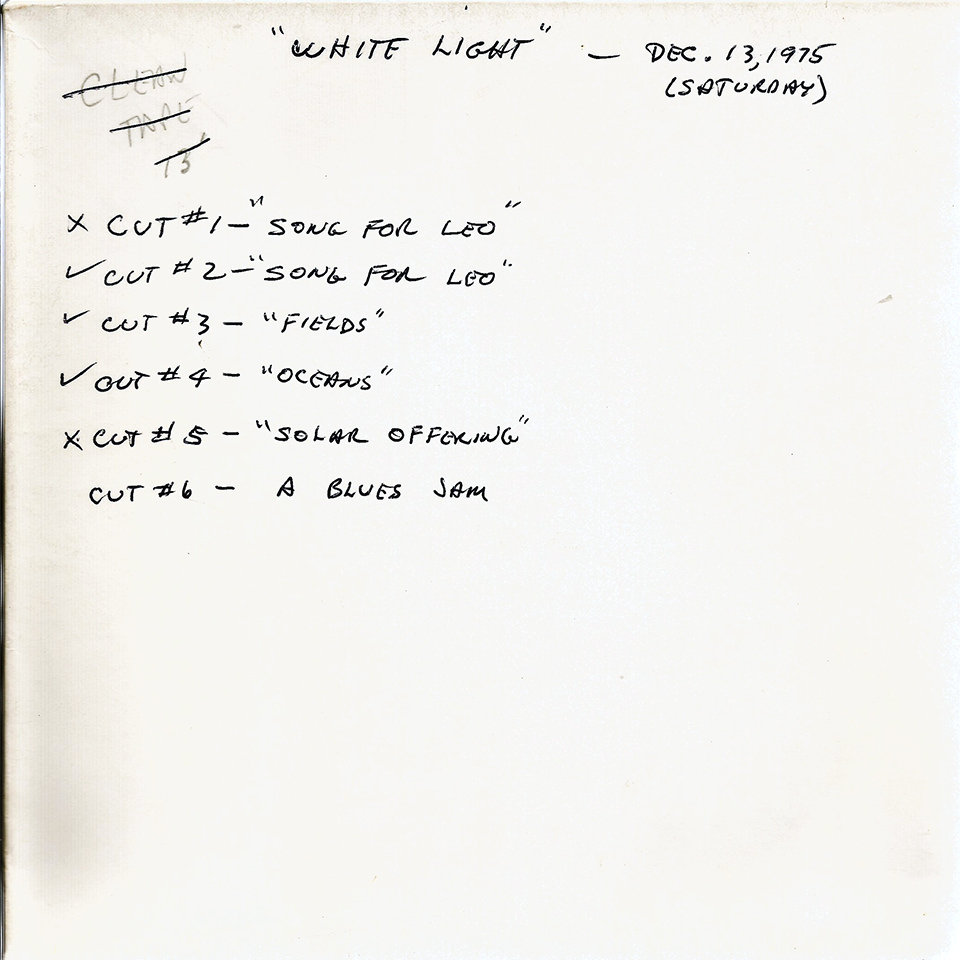 "WHITE LIGHT" — DEC. 13, 1975
(SATURDAY)
CLEAN
TAPE
13
X CUT #1 — "SONG FOR LEO"
✓ CUT #2 — "SONG FOR LEO"
✓ CUT #3 — "FIELDS"
✓ CUT #4 — "OCEANS"
X CUT #5 — "SOLAR OFFERING"
CUT #6 — A BLUES JAM